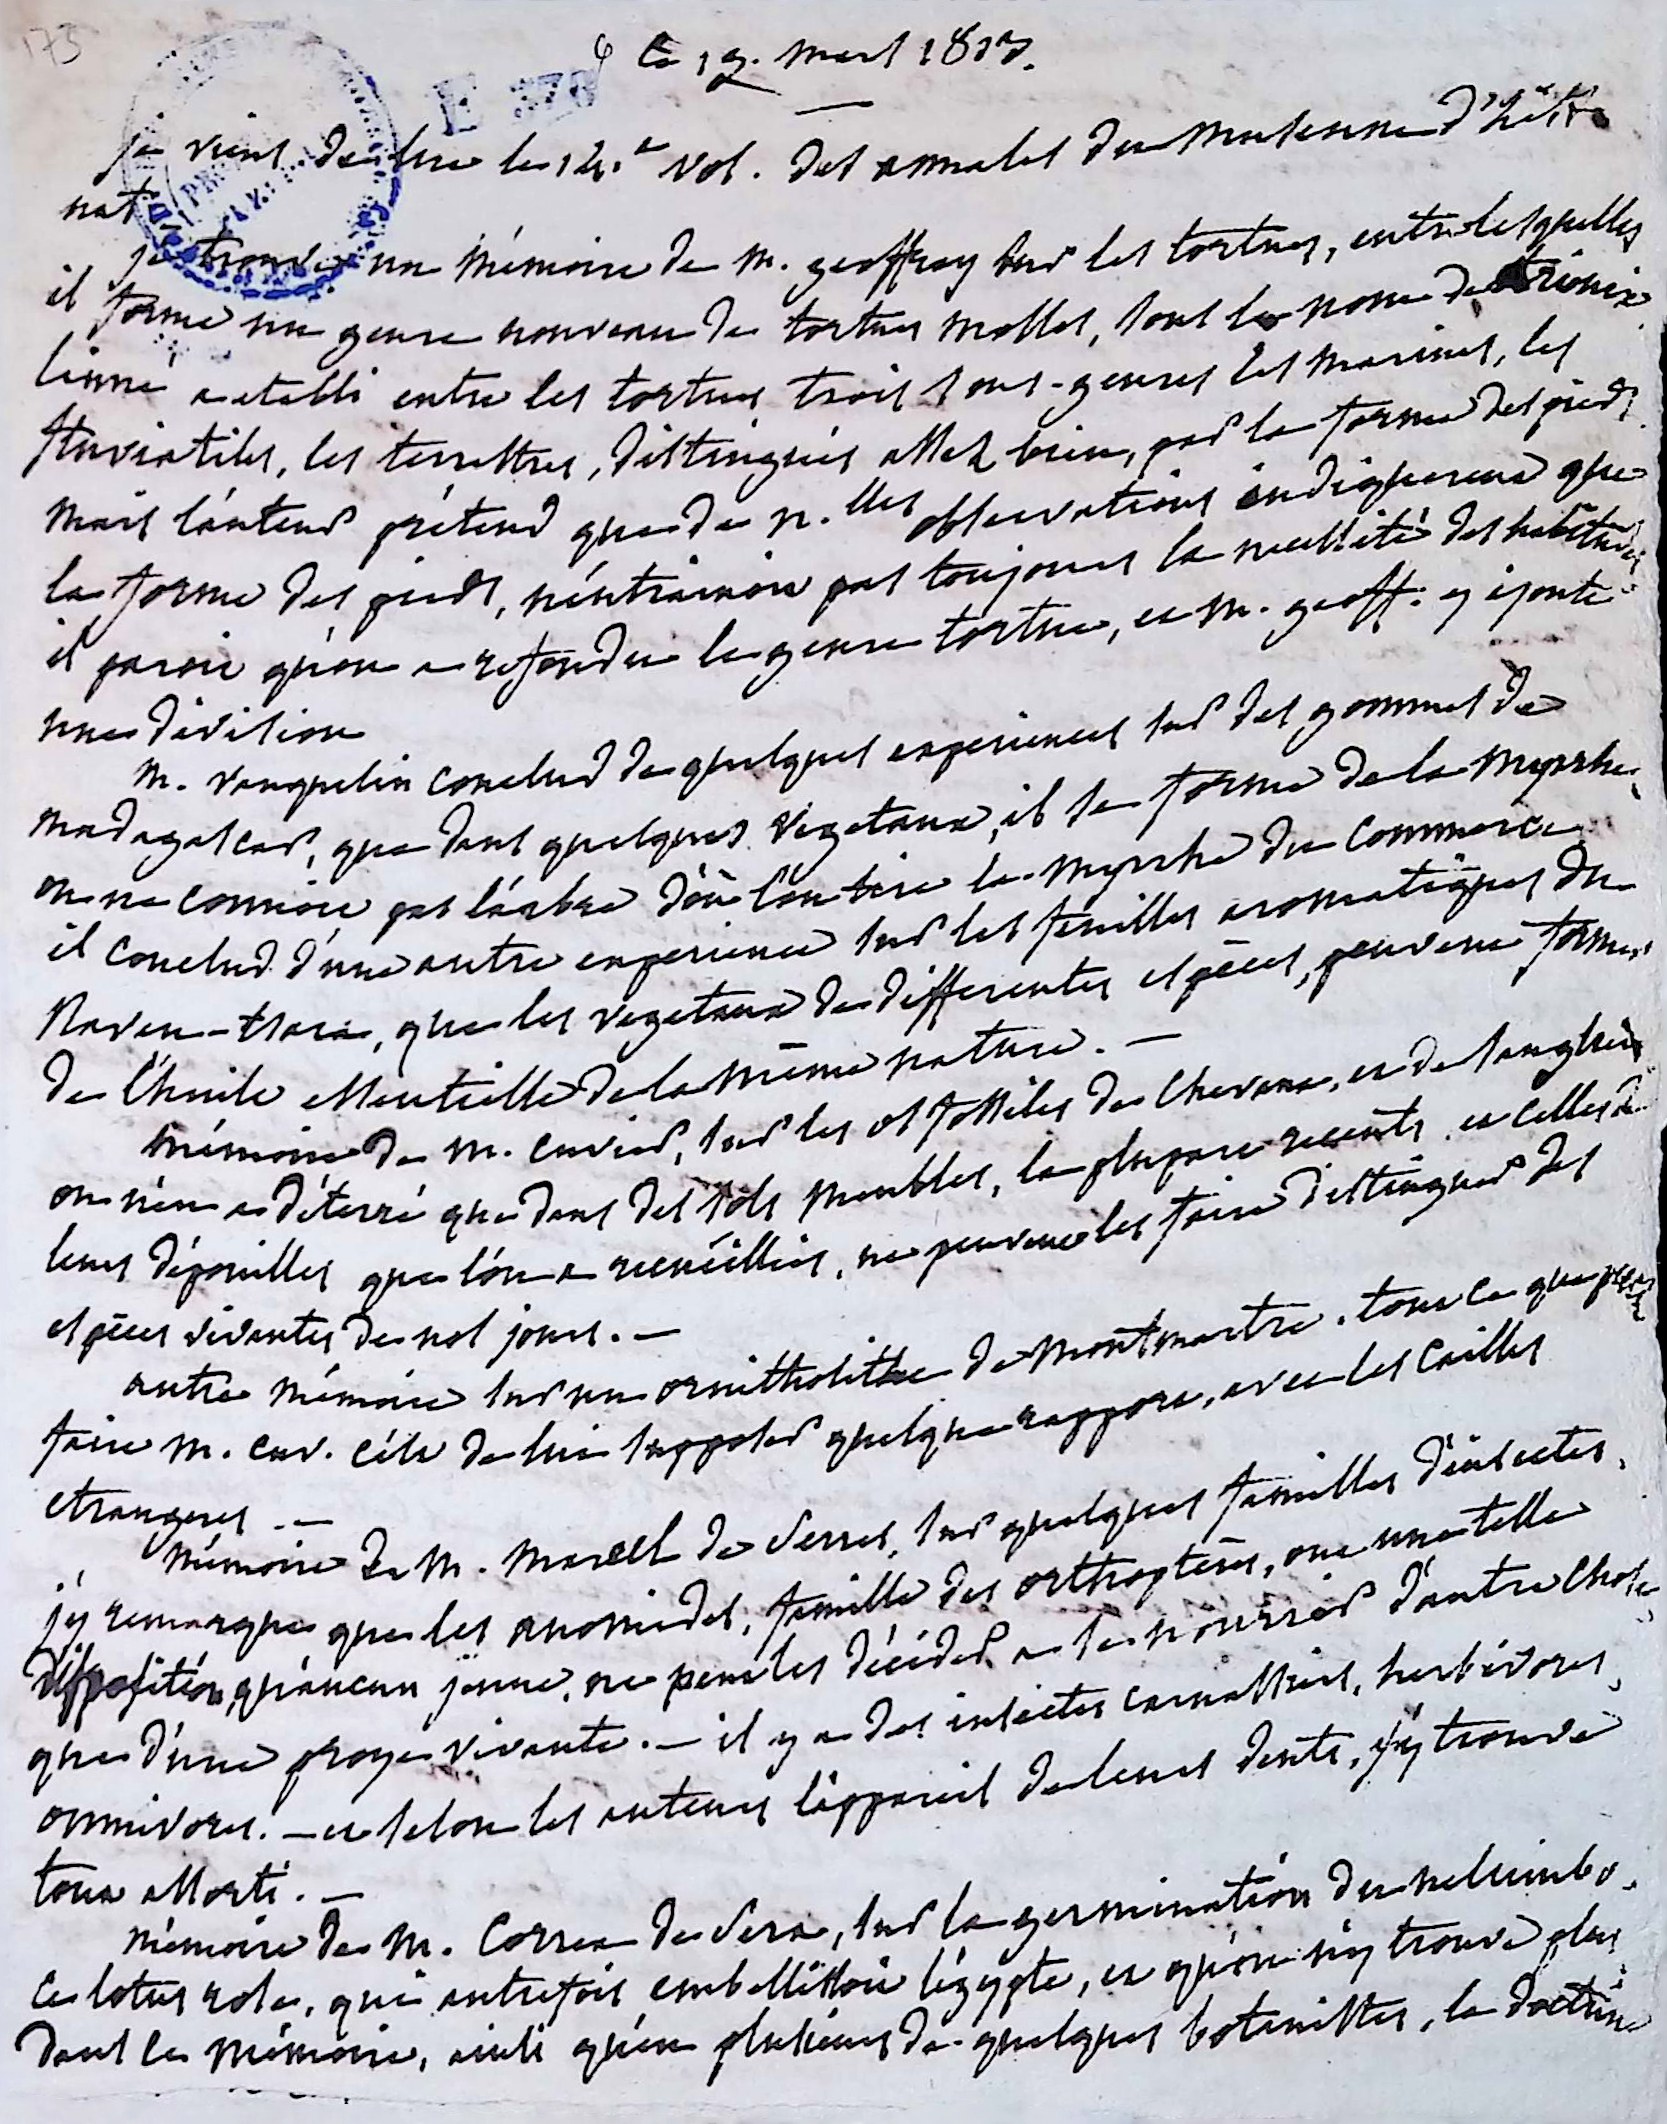 173
ce 19. mars 18
E 276
je viens de lire le 14.e vol. des annales du Museum d'hist.
nat
je trouve un Mémoire de M. geoffroy sur les tortues, entre lesquelles
il forme un genre nouveau de tortues molles, sous le nom de trionix
linné a etabli entre les tortues trois sous-genres les marines, les
fluviatiles, les terrestres, distingués assez bien, par la forme des pieds.
mais l'auteur prétend que de n.lles observations indiquerent que
la forme des pieds, n'entrainoit pas toujours la des habitudes
il paroit qu'on a refondu le genre tortue, et M. geoff. y ajoute
une division
M. vauquelin conclud de quelques experiences sur des gommes de
madagascar, que dans quelques vegetaux, il se forme de la myrrhe,
on ne connoit pas l'arbre d'où l'on tire la myrrhe du commerce
il conclud d'une autre experience sur les feuilles aromatiques du
Raven-tsara, que les vegetaux de differentes espèces, peuvent former
de l'huile essentielle de la même nature. —
Mémoire de M. Cuvier, sur les os fossiles de chevaux, et de sanglier
on n'en a déterré que dans des sols meubles, la plupart recents et celles de
leurs dépouilles que l'on a recueillies, ne peuvent les faire distinguer des
espèces vivantes de nos jours. —
autre mémoire sur un ornitholithe de Montmartre. tout ce que peut
faire M. cuv. c'est de lui supposer quelque rapport, avec les cailles
etrangeres. —
Mémoire de M. Marcel de Serres, sur quelques familles d'insectes,
j'y remarque que les famille des orthoptères, ont une telle
disposition, qu'aucun jeune, ne peut les décider a se nourrir d'autre chose
que d'une proye vivante. — il y a des insectes carnassiers, herbivores,
omnivores. — et selon les auteurs l'appareil de leurs dents, s'y trouve
tout assorti. —
Mémoire de M. Correa de Serra, sur la germination du nelumbo.
ce lotus rose, qui autrefois embellissoit l'égypte, et qu'on n'y trouve plus
dans le mémoire, ainsi qu'en plusieurs de quelques botanistes, la doctrine